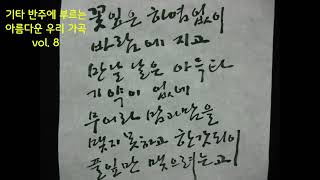 기타 반주에 부르는
아름다운 우리 가곡
vol. 8
꽃잎은 하염없이
바람에 지고
만날 날은 아득타
기약이 없네
무어라 맘과 맘을
맺지 못하고 한갓되이
풀잎만 맺으려는고